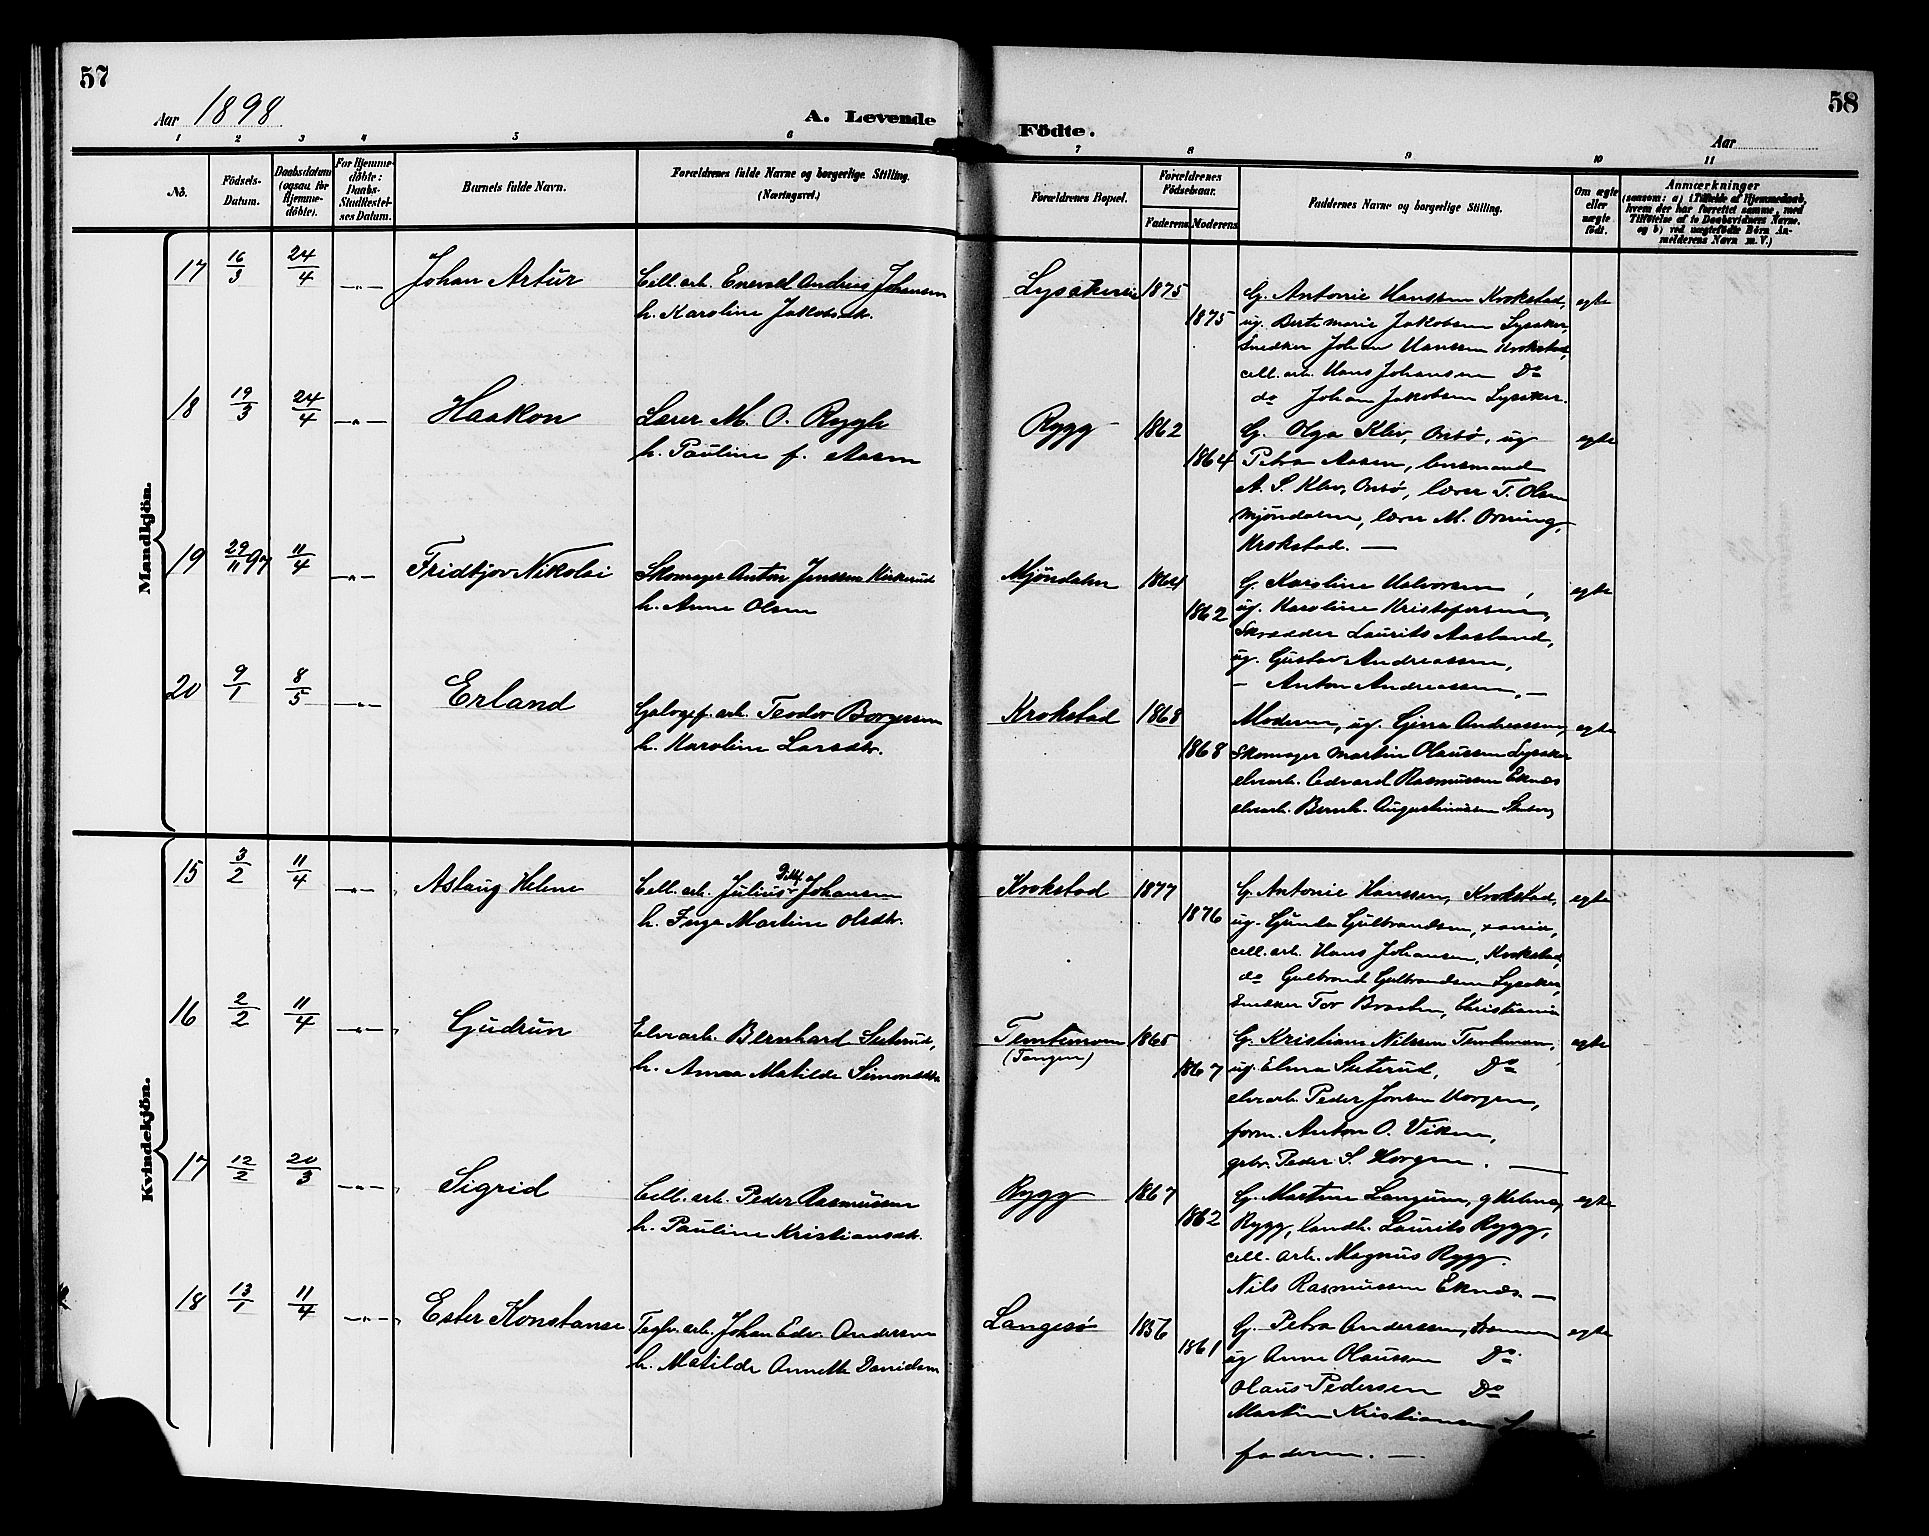 57
58
Aar 1898
A. Levende
Födte.
Aar
1 2 3 4 5 6 7 8 9 10 11
No.
Födsels-
Datum.
Daabsdatum
(ogsaa for
Hjemme-
döbte).
For Hjemme-
döbte:
Daabs-
Stadfæstel-
ses Datum.
Barnets fulde Navn.
Forældrenes fulde Navne og borgerlige Stilling.
(Næringsvei.)
Forældrenes Bopæl.
Forældrenes
Födselsaar.
Faderens
Moderens
Faddernes Navne og borgerlige Stilling.
Om ægte
eller
uægte
födt.
Anmærkninger
(saasom: a) i Tilfælde af Hjemmedaab,
hvem der har forrettet samme, med
Tilföielse af to Daabsvidners Navne.
og b) ved uægtefödte Börn An-
melderens Navn m. V.)
Mandkjön.
17 16/3 24/4 -"- Johan Artur
Cell. arb. Enevald Andreas Johansen
h. Karoline Jakobsdt.
1875
1875
egte
G. Antonie Hanssen Krokstad,
ug. Berte marie Jakobsen Lysaker,
Snedker Johan Hanssen Krokstad,
cell. arb. Hans Johansen Do
do Johan Jakobsen Lysaker.
18 19/3 24/4 -"- Haakon
Lærer M. O. Rygh
h. Pauline f. Aasen
Rygg 1862
1864
egte
G. Olga Klev, Onsö, ug
Petra Aasen, lensmand
A. S. Klev, Onsö, lærer T. Olsen
Mjöndalen, lærer M. Orning,
Krokstad. —
19 29/11 97 11/4 -"- Fridtjov Nikolai
Skomager Anton Jenssen Kirkerud
h. Anne Olsen
Mjöndalen 1864
1862
egte
G. Karoline Halvorsen,
ug. Karoline Kristofersen,
Skrædder Laurits Aasland,
ug. Gustav Andreassen,
- Anton Andreassen. —
20 9/1 8/5 -"- Erland
arb. Teodor Borgersen
h. Karoline Larsdt.
Krokstad 1868
1868
egte
Moderen, ug. Gina Andreassen,
Skomager Martin Olaussen Lysaker
elvearb. Edvard Rasmussen Eknæs
elvearb. Bernh. Augustinussen
Kvindekjön.
15 3/2 11/4 -"- Aslaug Helene
Cell. arb. Julius Johansen
h. Inga Martine Olsdt.
Krokstad 1877
1876
egte
G. Antonie Hanssen, Krokstad,
ug. Gunda Gulbrandsen, xania,
cell. arb. Hans Johansen, Krokstad,
do Gulbrand Gulbrandsen Lysaker,
Snedker Tor Braaten, Christiania
16 2/2 11/4 -"- Gudrun
Elvearb. Bernhard Seterud,
h. Anna Matilde Simonsdt.
(Tangen)
1865
1867
egte
G. Kristiane Nilssen
ug. Elma Seterud, Do
elvearb. Peder Jonsen Horgen,
form. Anton O. Viken,
grbr. Peder S. Horgen. —
17 12/2 20/3 -"- Sigrid
Cell. arb. Peder Rasmussen
h. Pauline Kristiansdt.
Rygg 1867
1862
egte
G. Martine Langum, g Helma
Rygg, landh. Laurits Rygg,
cell. arb. Magnus Rygg.
Nils Rasmussen Eknæs. —
18 13/1 11/4 -"- Ester Konstanse
Teglv. arb. Johan Edv. Andersen
h. Matilde Annette Danielsen
Langesö 1856
1861
egte
G. Petra Anderssen,
ug Anne Olaussen Do
Olaus Pedersen Do
Martin Kristiansen
faderen. —